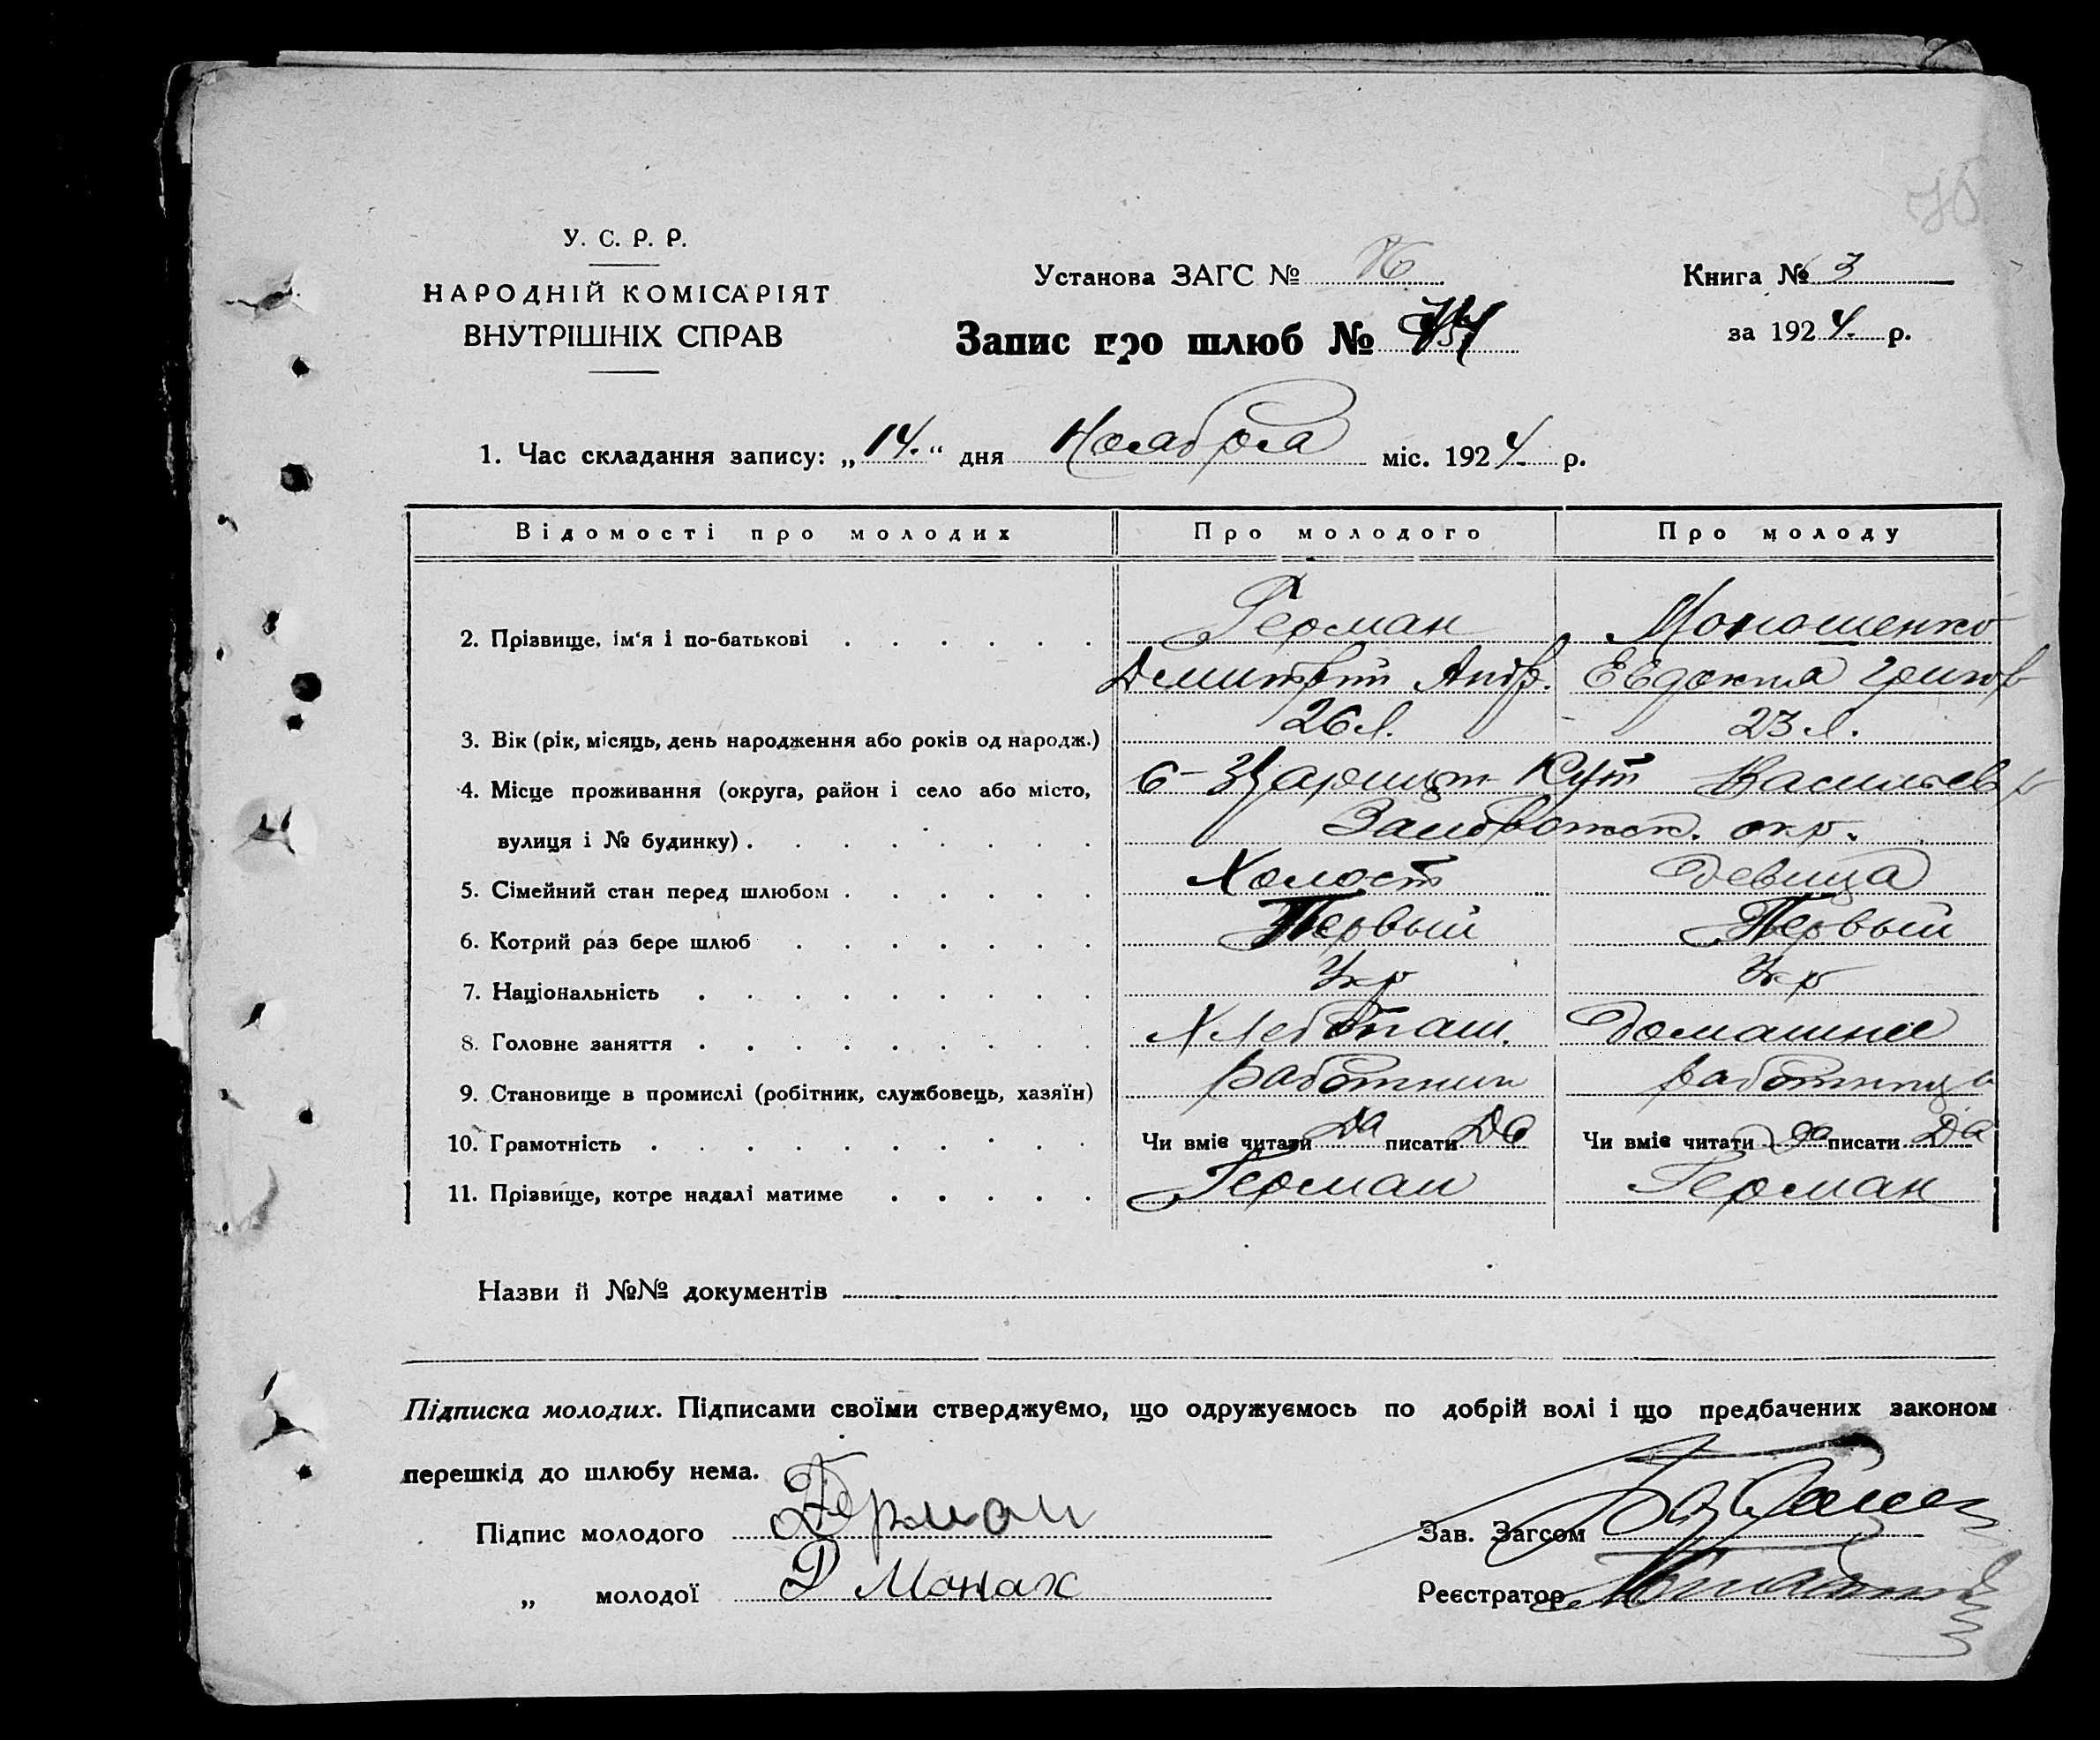 У. С. Р. Р.
НАРОДНІЙ КОМІСАРІЯТ
ВНУТРІШНІХ СПРАВ
Установа ЗАГС №
Книга № 3
Запис про шлюб №
за 1924. р.
1. Час складання запису: „14.“ дня Ноября міс. 1924. р.
Відомості про молодих Про молодого Про молоду
2. Прізвище, ім‘я і по-батькові Герман
Дмитрий Андр. Евдокия Григор
3. Вік (рік, місяць, день народження або років од народж.) 26 л. 23 л.
4. Місце проживання (округа, район і село або місто, Кут Васильев
вулиця і № будинку) Запорожск. окр.
5. Сімейний стан перед шлюбом Холост Девица
6. Котрий раз бере шлюб Первый Первый
7. Національність Укр Укр
8. Головне заняття Хлебопаш. Домашнее
9. Становище в промислі (робітник, службовець, хазяїн) работник работница
10. Грамотність Чи вміє читати Да писати Да Чи вміє читати да писати Да
11. Прізвище, котре надалі матиме Герман Герман
Назви й №№ документів
Підписка молодих. Підписами своїми стверджуємо, що одружуємось по добрій волі і що предбачених законом
перешкід до шлюбу нема.
Підпис молодого Герман
Зав. Загсом
„ молодої Д Монах
Реєстратор